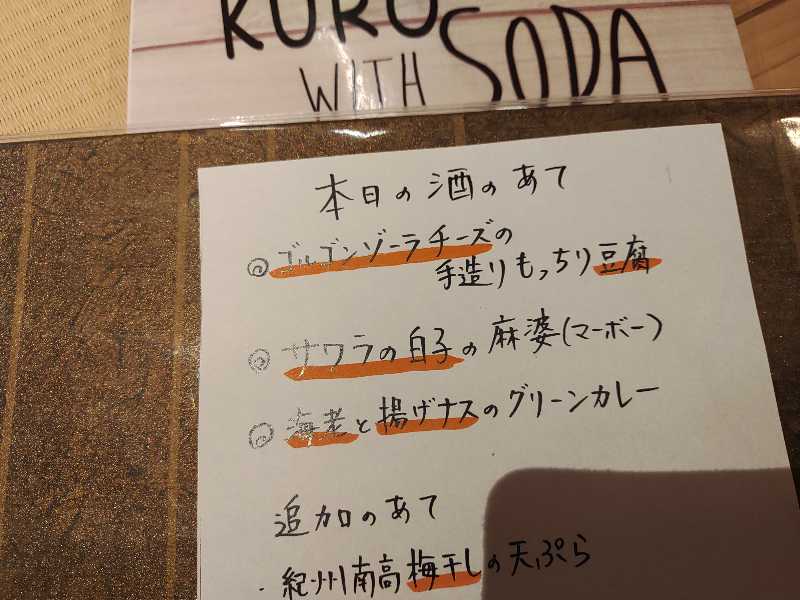 KURO
WITH SODA
本日の酒のあて
◎ ゴルゴンゾーラチーズの
手造りもっちり豆腐
◎ サワラの白子の麻婆(マーボー)
◎ 海老と揚げナスのグリーンカレー
追加のあて
・紀州南高梅干しの天ぷら